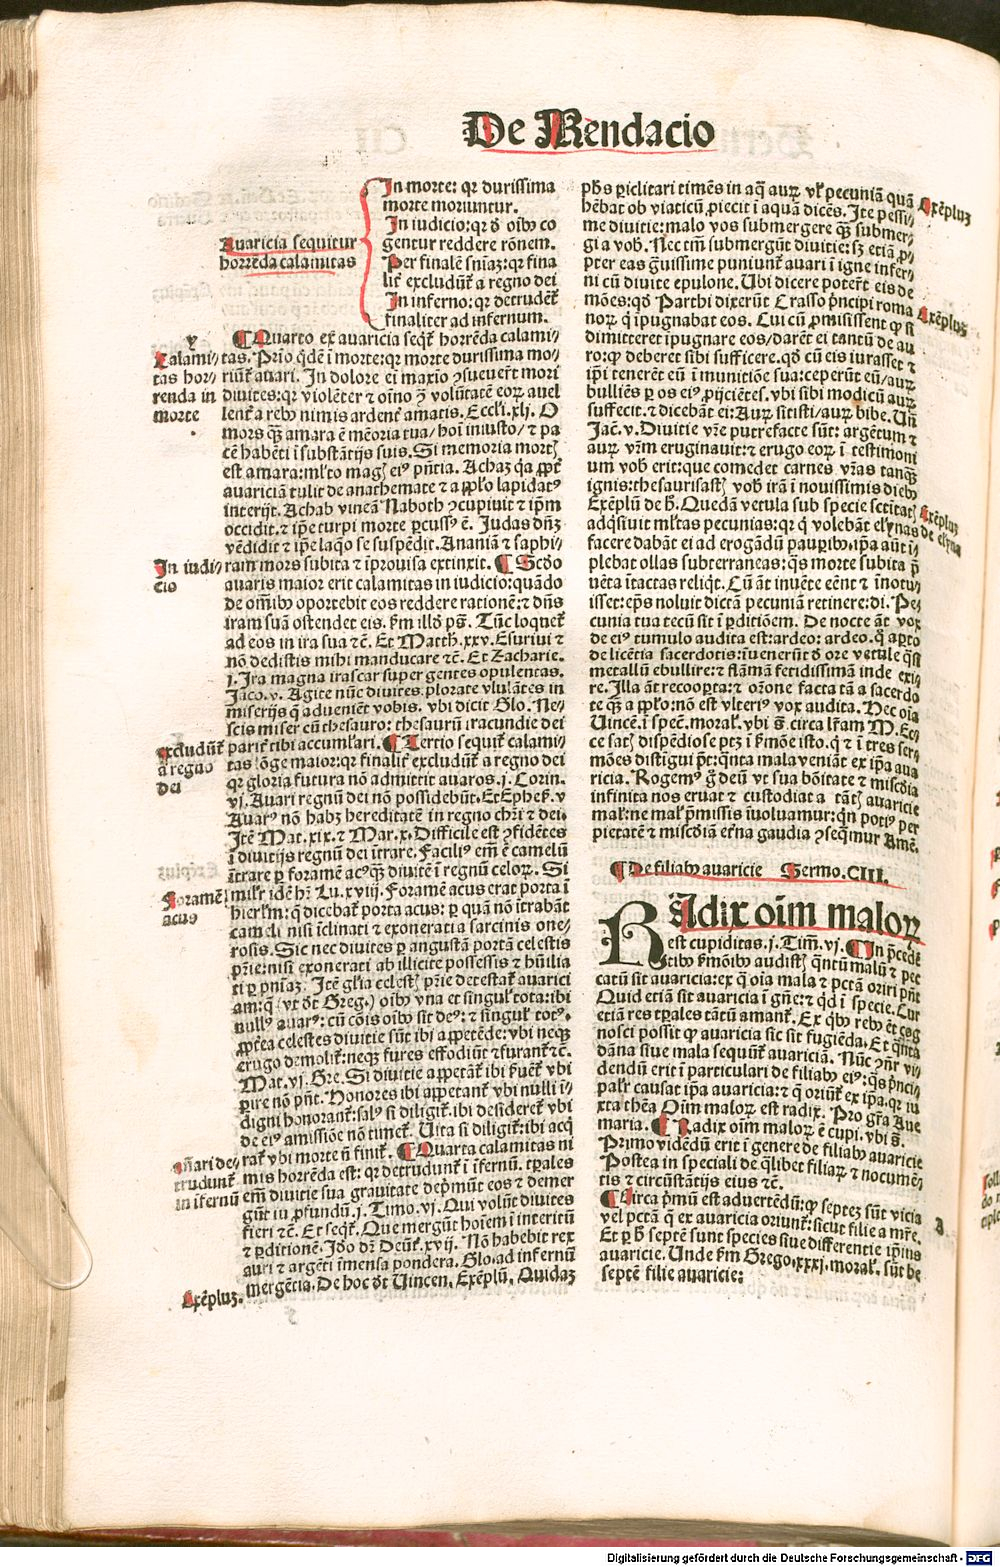 De Mendacio
Auaricia sequitur
horrēda calamitas
In morte: qꝛ durissima
morte moriuntur.
In iudicio: qꝛ ð oībꝰ co
gentur reddere rōnem.
Per finalē sniaꝫ: qꝛ fina
lit̄ excludūt̄ a regno dei
In inferno: qꝛ detrudēt̄
finaliter ad infernum.
¶ Quarto ex auaricia seqt̄ horrēda calami⸗
tas. Prīo qdē ī morte: qꝛ morte durissima mo⸗
riūt̄ auari. In dolore ei maxīo ꝯsueuer̄t mori
diuites: qꝛ violēter ⁊ oīno ꝯ̄ volūtatē eoꝝ auel
lent̄ a rebꝰ nimis ardent̄ amatis. Eccli. xlj. O
mors qꝫ̄ amara ē mēoria tua/ hoī iniusto/ ⁊ pa
cē habēti ī substātijs suis. Si memoria mort̄
est amara: ml̄to maḡ eiꝰ pn̄tia. Achaz q̇a ꝓpt̄
auariciā tulit de anathemate ⁊ a pplo lapidatꝰ
interijt. Achab vineā Naboth ꝯcupiuit ⁊ ip̄m
occidit. ⁊ ip̄e turpi morte ꝑcussꝰ ē. Judas dn̄ꝫ
vēdidit ⁊ ip̄e laq̄o se suspēdit. Ananiā ⁊ saphi⸗
ram mors subita ⁊ īprouisa extinxit. ¶ Scdo
auaris maior erit calamitas in iudicio: quādo
de om̄ibꝰ oportebit eos reddere rationē: ⁊ dn̄s
iram suā ostendet eis. ẜm illð pš. Tūc loquet̄
ad eos in ira sua ⁊c̄. Et Matth. xxv. Esuriui ⁊
nō dedistis mihi manducare ⁊c̄. Et Zacharie.
j. Ira magna irascar super gentes opulentas.
Jaco. v. Agite nūc diuites, plorate vlulātes in
miserijs q̄ aduenient vobis. vbi dicit Glo. Ne⸗
scis miser cū thesauro: thesaurū iracundie dei
parit̄ tibi accumlari. ¶ Tertio sequit̄ calami⸗
tas lōge maior: qꝛ finalit̄ excludūt̄ a regno dei
qꝛ gloria futura nō admittit auaros. j. Corin.
vj. Auari regnū dei nō possidebūt. Et Ephes. v
Auarꝰ nō habꝫ hereditatē in regno chri ⁊ dei.
Itē Mat. xix. ⁊ Mar. x. Difficile est ꝯfidētes
ī diuitijs regnū dei ītrare. Faciliꝰ em̄ ē camelū
ītrare ꝑ foramē acꝰ qꝫ diuitē ī regnū celoꝝ. Si
milꝛ idē hꝫ Lu. xviij. Foramē acus erat porta ī
hierlm̄: q̄ dicebat̄ porta acus: ꝑ quā nō ītrabāt
cameli nisi īclinati ⁊ exonerati a sarcinis one⸗
rosis. Sic nec diuites ꝑ angustā portā celestis
pr̄ie: nisi exonerati ab illicite possessis ⁊ hūilia
ti ꝑ pn̄iaꝫ. Itē gl̄ia celest̄ pr̄ie detestat̄ auarici
am: q̄ (vt ðt Greg.) oībꝰ vna et singul̄ tota: ibi
nullꝰ auarꝰ: cū cōis oībꝰ sit deꝰ: ⁊ singul̄ totꝰ.
ꝓpt̄ea celestes diuitie sūt ibi appetēde: vbi neqꝫ
erugo demolit̄: neqꝫ fures effodiūt ⁊ furant̄ ⁊c̄.
Mat. vj. Gre. Si diuitie appetāt̄ ibi ẜuēt̄ vbi
perire nō pn̄t. Honores ibi appetant̄ vbi nulli ī⸗
digni honorant̄: salꝰ si diligit̄: ibi desideret̄ vbi
de eiꝰ amissiōe nō timet̄. Uita si diligit̄: ibi acq̇
rat̄ vbi morte ñ finit̄. ¶ Quarta calamitas ni
mis horrēda est: qꝛ detrudunt̄ ī īfernū. tꝑales
em̄ diuitie sua grauitate dep̄mūt eos ⁊ demer
gūt ī ꝓfundū. j. Timo. vj. Qui volūt diuites
fieri ⁊c̄. Et seqt̄. Que mergūt hoīem ī interitū
⁊ ꝑditionē. Ido dꝛ Deut̄. xvij. Nō habebit rex
auri ⁊ argēti īmensa pondera. Glo. ad infernū
mergētia. De hoc ðt Uincen. Exēplū. Quidaꝫ
y
Kalami⸗
tas hor⸗
renda in
morte
In iudi⸗
cio
excludūt̄
a regno
dei
Foramē
acus
auari de⸗
trudunt̄
in īfernū
Exēpluꝫ.
phs ꝑiclitari timēs in aq̄ auꝝ vl̄ pecuniā quā
hēbat ob viaticū ꝓiecit ī aquā dicēs. Ite pessi⸗
me diuitie: malo vos submergere qꝫ̄ submer⸗
gi a vob̄. Nec tm̄ submergūt diuitie: sꝫ etiā ꝓ⸗
pter eas ḡuissime puniunt̄ auari ī igne infer⸗
ni cū diuite epulone. Ubi dicere poterit̄ eis de⸗
mōes: qð Parthi dixerūt Crasso pn̄cipi roma
noꝝ q̇ īpugnabat eos. Cui cū ꝓmisissent ꝙ si
dimitteret īpugnare eos/ darēt ei tantū de au
ro: ꝙ deberet sibi sufficere. qð cū eis iurasset ⁊
ip̄i tenerēt eū ī munitiōe sua: ceperūt eū/ auꝝ
bulliēs ꝑ os eiꝰ ꝓijciētes. vbi sibi modicū auꝝ
suffecit. ⁊ dicebāt ei: Auꝝ sitisti/ auꝝ bibe. Uñ
Jac̄. v. Diuitie vr̄e putrefacte sūt: argētum ⁊
auꝝ vr̄m eruginauit: ⁊ erugo eoꝝ ī testimoni
um vob̄ erit: que comedet carnes vr̄as tanqꝫ
ignis: thesaurisast̄ vob̄ irā ī nouissimis diebꝰ
Exēplū de ħ. Quedā vetula sub specie sctitat̄
adq̄siuit ml̄tas pecunias: qꝛ q̇ volebāt elꝰynas
facere dabāt ei ad erogādū pauꝑibꝰ. ip̄a aūt ī⸗
plebat ollas subterraneas: q̄s morte subita p̄
uēta ītactas reliq̇t. Cū āt inuēte eēnt ⁊ īnotu⸗
isset: ep̄s noluit dictā pecuniā retinere: di. Pe⸗
cunia tua tecū sit ī ꝑditiōem. De nocte āt vox
de eiꝰ tumulo audita est: ardeo: ardeo. q̄ aꝑto
de licētia sacerdotis: īuenerūt ð ore vetule q̄si
metallū ebullire: ⁊ flāmā fetidissimā inde exi⸗
re. Illa āt recooꝑta: ⁊ or̄one facta tā a sacerdo
te qꝫ̄ a pplo: nō est vlteriꝰ vox audita. Hec oīa
Uincē. ī specl̄. moral̄. vbi s̄. circa lr̄am M. Ec⸗
ce sat̄ dispēdiose ptꝫ ī ẜmōe isto. q̇ ⁊ ī tres ser⸗
mōes distigui pt̄: q̄nta mala veniāt ex ip̄a aua
ricia. Rogemꝰ ḡ deū vt sua bōitate ⁊ miscd̄ia
infinita nos eruat ⁊ custodiat a tāt̄ auaricie
mal̄: ne mal̄ p̄missis īuoluamur: qn̄ potiꝰ per
pietatē ⁊ miscd̄iam et̄na gaudia ꝯseq̄mur Amē.
¶ De filiabꝰ auaricie Sermo. CIII.
RAdix oīm maloꝝ
est cupiditas. j. Tim̄. vj. ¶ In p̄cedē
tibꝰ ẜmōibꝰ audist̄ q̄ntū malū ⁊ pec
catū sit auaricia: ex q̇ oīa mala ⁊ pctā oriri pn̄t
Quid etiā sit auaricia ī gn̄e: ⁊ qd̄ ī specie. Cur
etiā res tꝑales tātū amant̄. Ex qbꝰ rebꝰ ēt cog
nosci possit ꝙ auaricia sic sit fugiēda. Et q̄nta
dāna siue mala sequūt̄ auariciā. Nūc ꝯn̄r vi⸗
dendū erit ī particulari de filiabꝰ eiꝰ: q̄s pn̄ci⸗
palꝛ causat ip̄a auaricia: ⁊ q̄ oriūt̄ ex ip̄a. qꝛ iu
xta thēa Oīm maloꝝ est radix. Pro gr̄a Aue
maria. ¶ Radix oīm maloꝝ ē cupi. vbi s̄.
Primo vidēdū erit ī genere de filiabꝰ auaricie
Postea in speciali de q̄libet filiaꝝ ⁊ nocumē⸗
tis ⁊ circūstātijs eius ⁊c̄.
¶ Circa pmū est aduertēdū: ꝙ septeꝫ sūt vicia
vel pctā q̄ ex auaricia oriunt̄: sicut filie a mr̄e.
Et ꝑ ħ septē sunt species siue differentie ip̄ius
auaricie. Unde ẜm Grego. xxxj. moral̄. sūt he
septē filie auaricie:
Exēpluꝫ
Exēpluꝫ
Exēpluꝫ
de elꝰyna